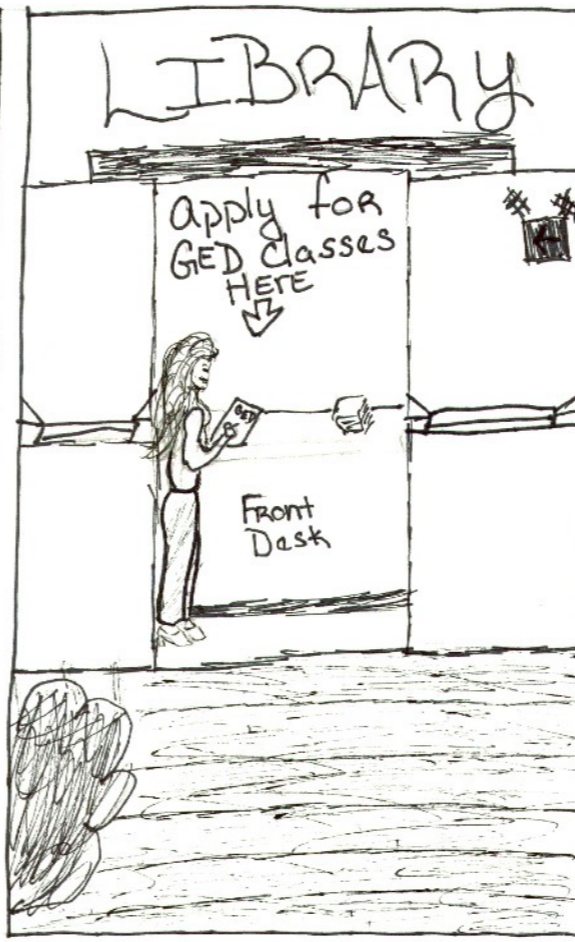 LIBRARY
apply for
GED classes
HERE
GED
Front
Desk